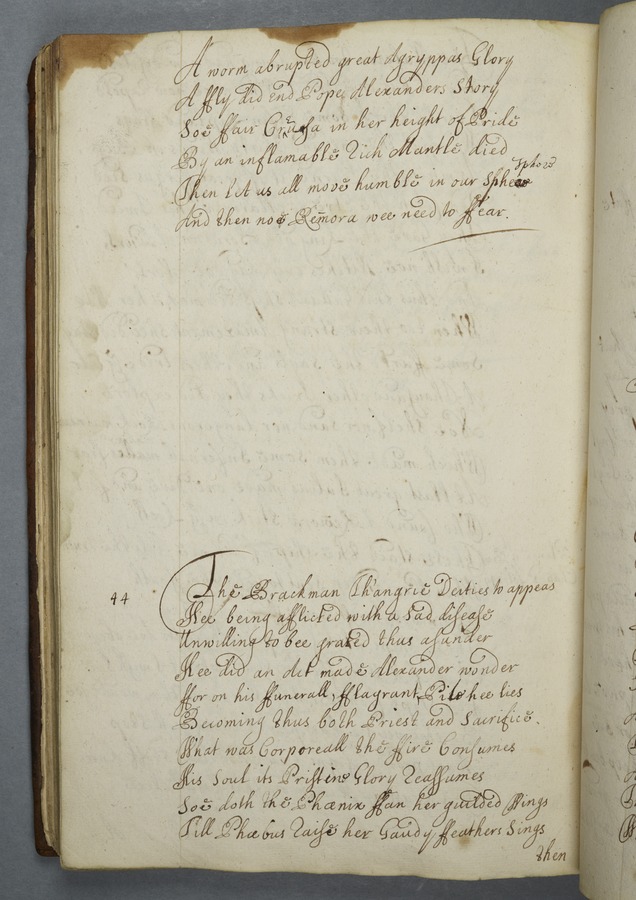 A worm abrupted great Agryppas Glory
A ffly did End Pope Alexanders Story
Soe ffair Crusa in her height of Pride
By an inflamable Rich Mantle died
Then let us all move humble in our Spheres
sphere
And then noe Remora wee need to ffear.
44
The Brackman Th'angrie Deities to appeas
Hee being afflicted with a sad disease
Unwilling to bee grated thus asunder
Hee did an Act made Alexander wonder
ffor on his ffunerall fflagrant Pile hee lies
Becoming thus both Priest and Sacrifice.
What was Corporeall the ffire Consumes
His Soul its Pristine Glory Reassumes
Soe doth the Phœnix ffan her guilded Wings
Till Phœbus Raise her Gaudy ffeathers Sings
then